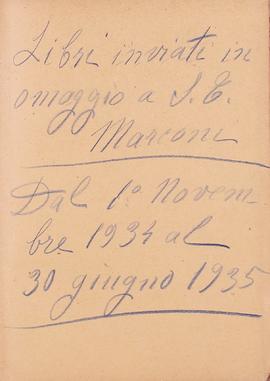 Libri inviati in
omaggio a S. E.
Marconi
Dal 1º Novem
bre 1934 al
30 giugno 1935